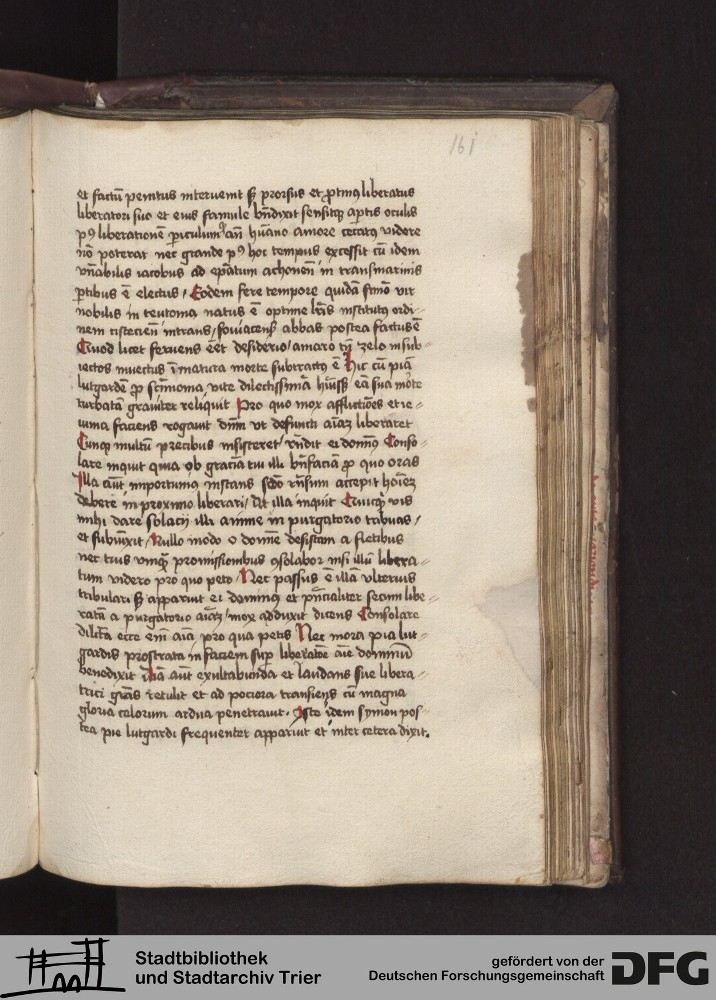 161
et factū penitus intervenit sꝫ prorsus et ꝓtinꝰ liberatus
liberatori suo et eius famule bn̄dixit sensitqꝫ aꝑtis oculis
pꝰ liberationē ꝑiculum qd̓ añ hūano amore cecatꝰ videre
nō poterat nec grande pꝰ hoc tempus excessit cū idem
vn̄abilis iacobus ad ep̄atum achonen̄ in transmarinis
ꝑtibus ē electus / Eodem fere tempore quidā simō vir
nobilis in teutonia natus ē optime lr̄is institutꝰ ordi-
nem cistercien̄ intrans / foniacens̄ abbas postea factus ē
Quod licet fervens eēt desiderio / amaro tn̄ zelo in sub-
iectos invectus īmatura morte subtractꝰ ē Hic cū piā
lutgardē ꝓ sc̄imonia vite dilectissimā huissꝫ eā sua morte
turbatā graviter reliquit Pro quo mox afflictiōes et ie-
iunia faciens rogavit dn̄m vt defuncti aīaꝫ liberaret
Cunqꝫ multū precibus insisteret rn̄dit ei dominꝰ Conso-
lare inquit quia ob graciā tui illi bn̄faciā ꝓ quo oras
Illa aūt importunius instans sc̄do rn̄sum accepit hoīeꝫ
debere in proximo liberari / At illa inquit Quicqꝫ vis
mihi dare solacii illi anime in purgatorio tribuas /
et subiūxit / Nullo modo o domine desistam a fletibus
nec tuis vnqꝫ promissionibus ꝯsolabor nisi illū libera-
tum videro pro quo peto / Nec passus ē illā vlterius
tribulari sꝫ apparuit ei dominus et pn̄cialiter secum libe-
ratā a purgatorio aīaꝫ / mox adduxit dicens Consolare
dilc̄a ecce em̄ aīa pro qua petis Nec mora pia lut-
gardis prostrata in faciem suꝑ liberatōe aīe dominū
benedixit illa aūt exultabunda et laudans sue libera-
trici grās retulit et ad pociora transiens cū magna
gloria celorum ardua penetravit . Iste idem symon pos-
tea pie lutgardi frequenter apparuit et inter cetera dixit.
Stadtbibliothek
und Stadtarchiv Trier
gefördert von der
Deutschen Forschungsgemeinschaft
DFG